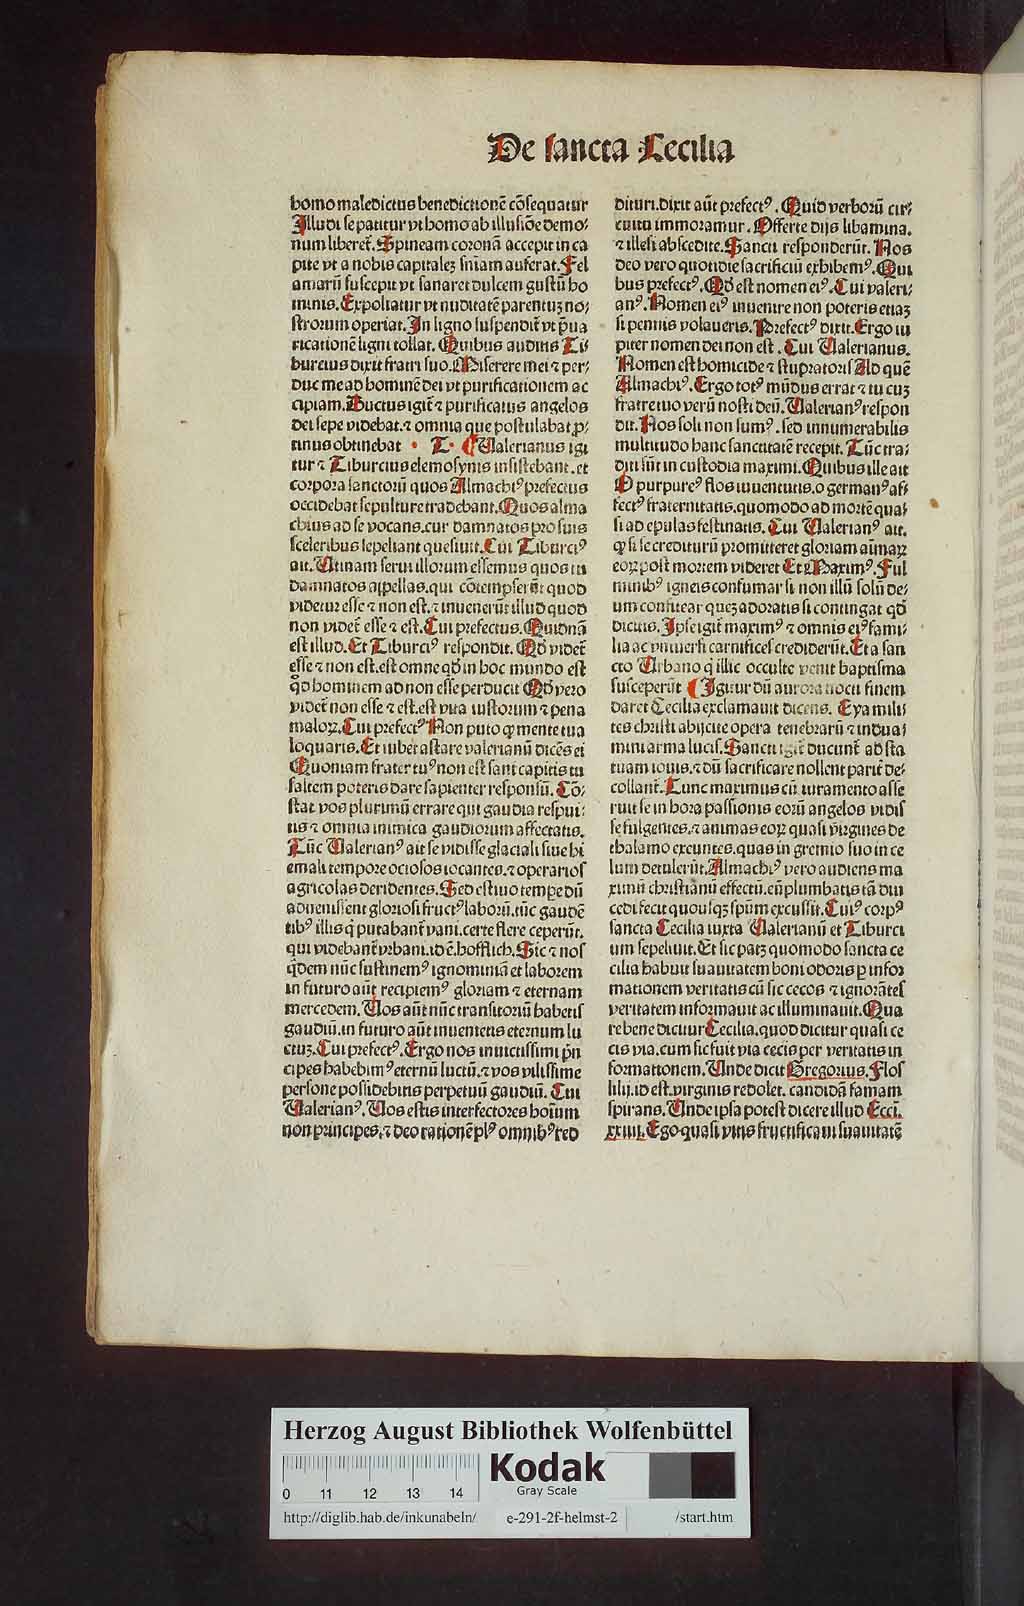 De sancta Cecilia
homo maledictus benedictionē cōsequatur
Illudi se patitur vt homo ab illusiōe demo-
num liberet᷑. Spineam coronā accepit in ca
pite vt a nobis capitaleꝫ sn̄iam auferat. Fel
amarū suscepit vt sanaret dulcem gustū ho
minis. Expoliatur vt nuditatē parentuꝫ no-
strorum operiat. In ligno suspendit᷑ vt p̄ua
ricationē ligni tollat. Quibus auditis Ti-
burcius dixit fratri suo. Miserere mei ⁊ per-
duc me ad hominē dei vt purificationem ac
cipiam. Ductus igit᷑ ⁊ purificatus angelos
dei sepe videbat. ⁊ omnia que postulabat ꝓ-
tinus obtinebat · T · ¶ Ualerianus igi
tur ⁊ Tiburcius elemosynis insistebant. et
corpora sanctorū quos Almachiꝰ prefectus
occidebat sepulture tradebant. Quos alma
chius ad se vocans. cur damnatos pro suis
sceleribus sepeliant quesiuit. Cui Tiburciꝰ
ait. Utinam serui illorum essemus quos tu
damnatos appellas. qui cōtempserūt quod
videtur esse ⁊ non est. ⁊ inuenerūt illud quod
non videt᷑ esse ⁊ est. Cui prefectus. Quidnā
est illud. Et Tiburciꝰ respondit. Qd̄ videt᷑
esse ⁊ non est. est omne qd̄ in hoc mundo est
qd̄ hominem ad non esse perducit Qd̄ vero
videt᷑ non esse ⁊ est. est vita iustorum ⁊ pena
maloꝝ. Cui prefectꝰ Non puto ꝙ mente tua
loquaris. Et iubet astare valerianū dicēs ei
Quoniam frater tuꝰ non est sani capitis tu
saltem poteris dare sapienter responsū. Cō-
stat vos plurimū errare qui gaudia respui-
tis ⁊ omnia inimica gaudiorum affectatis.
Tūc Ualerianꝰ ait se vidisse glaciali siue hi
emali tempore ociosos iocantes. ⁊ operarios
agricolas deridentes. Sed estiuo tempe dū
aduenissent gloriosi fructꝰ laborū. tūc gaudē
tibꝰ illis q̄ putabant᷑ vani. certe flere ceperūt.
qui videbant᷑ vrbani. id ē. hofflich. Sic ⁊ nos
q̄dem nūc sustinemꝰ ignominiā et laborem
in futuro aūt recipiemꝰ gloriam ⁊ eternam
mercedem. Uos aūt nūc transitoriū habetis
gaudiū. in futuro aūt inuenietis eternum lu
ctuꝫ. Cui prefectꝰ. Ergo nos inuictissimi pn̄
cipes habebimꝰ eternū luctū. ⁊ vos vilissime
persone possidebitis perpetuū gaudiū. Cui
Ualerianꝰ. Uos estis interfectores hoīum
non principes. ⁊ deo rationē plꝰ omnibꝰ red
dituri. dixit aūt prefectꝰ. Quid verborū cir-
cuitu immoramur. Offerte dijs libamina.
⁊ illesi abscedite. Sancti responderūt. Nos
deo vero quotidie sacrificiū exhibemꝰ. Qui
bus prefectꝰ. Qd̄ est nomen eiꝰ. Cui valeri-
anꝰ. Nomen eiꝰ inuenire non poteris etiaꝫ
si pennis volaueris. Prefectꝰ dixit. Ergo iu
piter nomen dei non est. Cui Ualerianus.
Nomen est homicide ⁊ stupratoris Ad quē
Almachiꝰ. Ergo totꝰ mūdus errat ⁊ tu cuꝫ
fratre tuo verū nosti deū. Ualerianꝰ respon
dit. Nos soli non sumꝰ. sed innumerabilis
multitudo hanc sanctitatē recepit. Tūc tra-
diti sūt in custodia maximi. Quibus ille ait
O purpureꝰ flos iuuentutis. o germanꝰ af-
fectꝰ fraternitatis. quomodo ad mortē qua-
si ad epulas festinatis. Cui Ualerianꝰ ait.
ꝙ si se crediturū promitteret gloriam aīmaꝝ
eoꝝ post mortem videret Et Maximꝰ. Ful
minibꝰ igneis consumar si non illū solū de-
um confitear queꝫ adoratis si contingat qd̄
dicitis. Ipse igit᷑ maximꝰ ⁊ omnis eiꝰ fami-
lia ac vniuersi carnifices crediderūt. Et a san
cto Urbano q̄ illic occulte venit baptisma
susceperūt ¶ Igitur dū aurora nocti finem
daret Cecilia exclamauit dicens. Eya mili
tes christi abijcite opera tenebrarū ⁊ indua-
mini arma lucis. Sancti igit᷑ ducunt᷑ ad sta
tuam iouis. ⁊ dū sacrificare nollent parit᷑ de-
collant᷑. Tunc maximus cū iuramento asse
ruit se in hora passionis eorū angelos vidis
se fulgentes. ⁊ animas eoꝝ quasi virgines de
thalamo exeuntes. quas in gremio suo in ce
lum detulerūt. Almachiꝰ vero audiens ma
ximū christianū effectū. eū plumbatis tā diu
cedi fecit quousqꝫ spm̄ excussit. Cuiꝰ corpꝰ
sancta Cecilia iuxta Ualerianū et Tiburci
um sepeliuit. Et sic patꝫ quomodo sancta ce
cilia habuit suauitatem boni odoris ꝑ infor
mationem veritatis cū sic cecos ⁊ ignorātes
veritatem informauit ac illuminauit. Qua
re bene dicitur Cecilia. quod dicitur quasi ce
cis via. cum sic fuit via cecis per veritatis in
formationem. Unde dicit Gregorius. Flos
lilij. id est. virginis redolet. candidā famam
spirans. Unde ipsa potest dicere illud Ecci.
xxiiij. Ego quasi vitis fructificaui suauitatē
Herzog August Bibliothek Wolfenbüttel
Kodak
Gray Scale
0 11 12 13 14
http://diglib.hab.de/inkunabeln/ e-291-2f-helmst-2 /start.htm